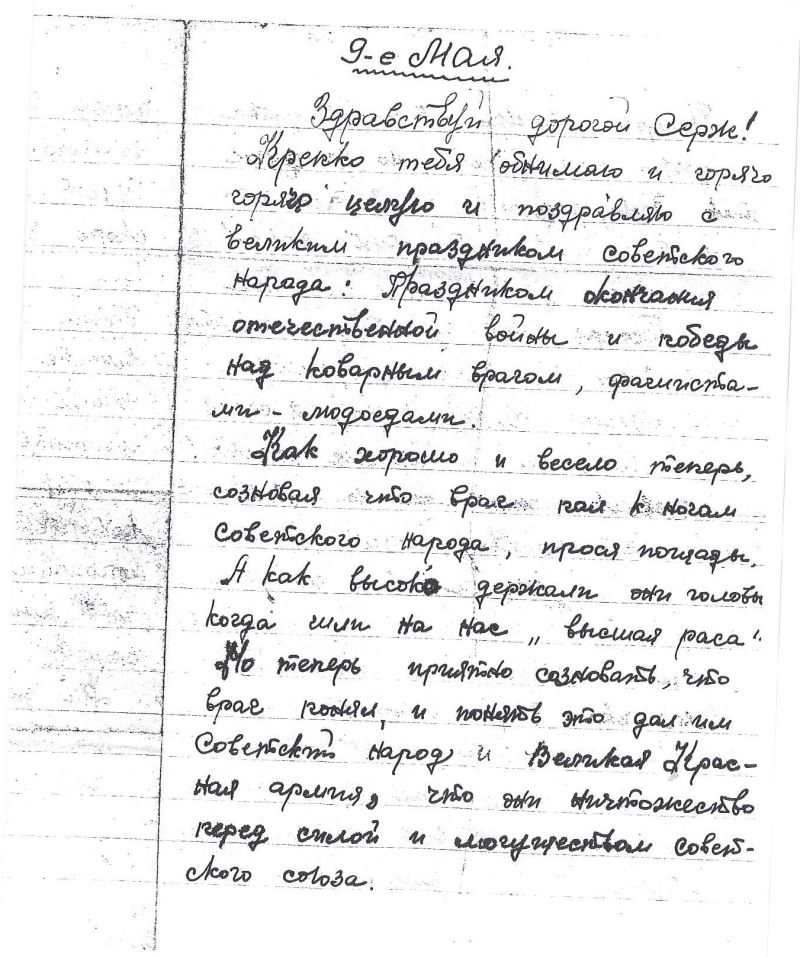 9-е Мая.
Здравствуй дорогой Серж!
Крепко тебя обнимаю и горячо
горячо целую и поздравляю с
великим праздником советского
народа: Праздником окончания
отечественной войны и победы
над коварным врагом, фашиста-
ми - людоедами.
Как хорошо и весело теперь,
созновая что враг пал к ногам
Советского народа, прося пощады.
А как высоко держали они головы
когда шли на нас „высшая раса".
Но теперь приятно созновать, что
враг понял, и понять это дал им
Советский народ и Великая Крас-
ная армия, что они ничтожество
перед силой и могуществом совет-
ского союза.